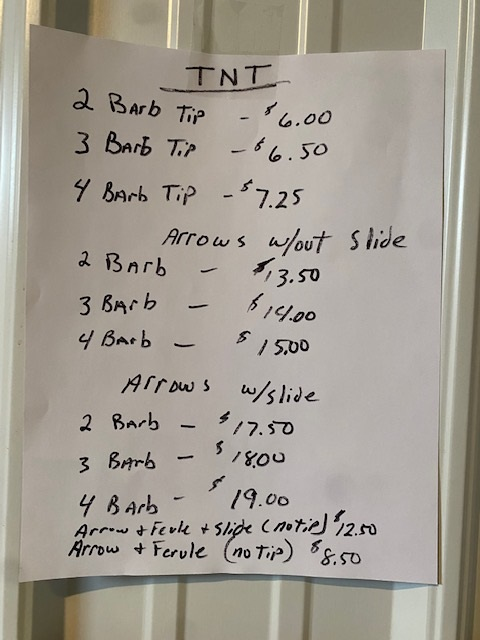 TNT
2 Barb Tip - $6.00
3 Barb Tip - $6.50
4 Barb Tip - $7.25
Arrows w/out Slide
2 Barb - $13.50
3 Barb - $14.00
4 Barb - $15.00
Arrows w/slide
2 Barb - $17.50
3 Barb - $18.00
4 Barb - $19.00
Arrow + Ferule + Slide (no tip) $12.50
Arrow + Ferule (no tip) $8.50